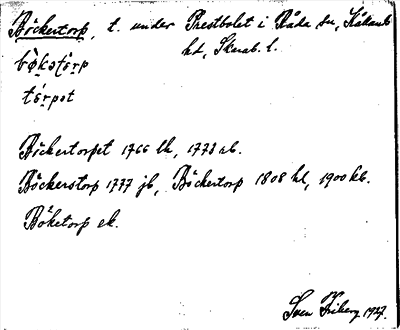 Böckertorp, t. under Prestbolet i Råda sn, Kållands
hd, Skarab. l.
bø̀kətə̀rp
tǽrpət
Böckertorpet 1766 lh, 1778 ab.
Böckerstorp 1777 jb, Böckertorp 1808 hl, 1900 kb.
Böketorp ek.
Sven Friberg 1927.